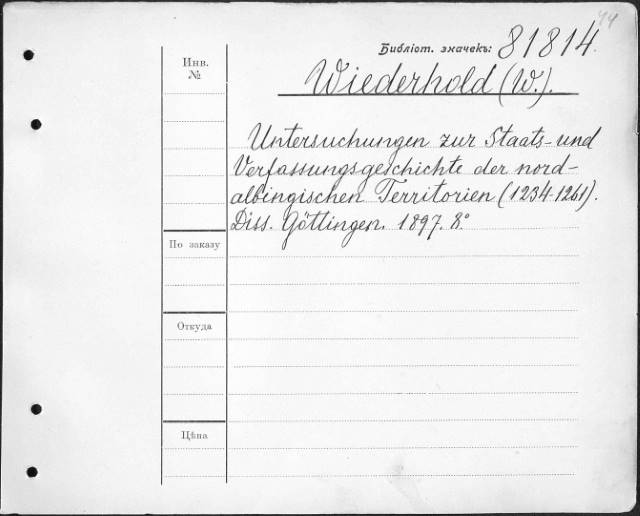 44
Библіот. значекъ: 81814.
Инв.
№
Wiederhold (W.).
Untersuchungen zur Staats- und
Verfassungsgeschichte der nord-
albingischen Territorien (1234-1261).
Diss. Göttingen. 1897. 8°
По заказу
Откуда
Цѣна